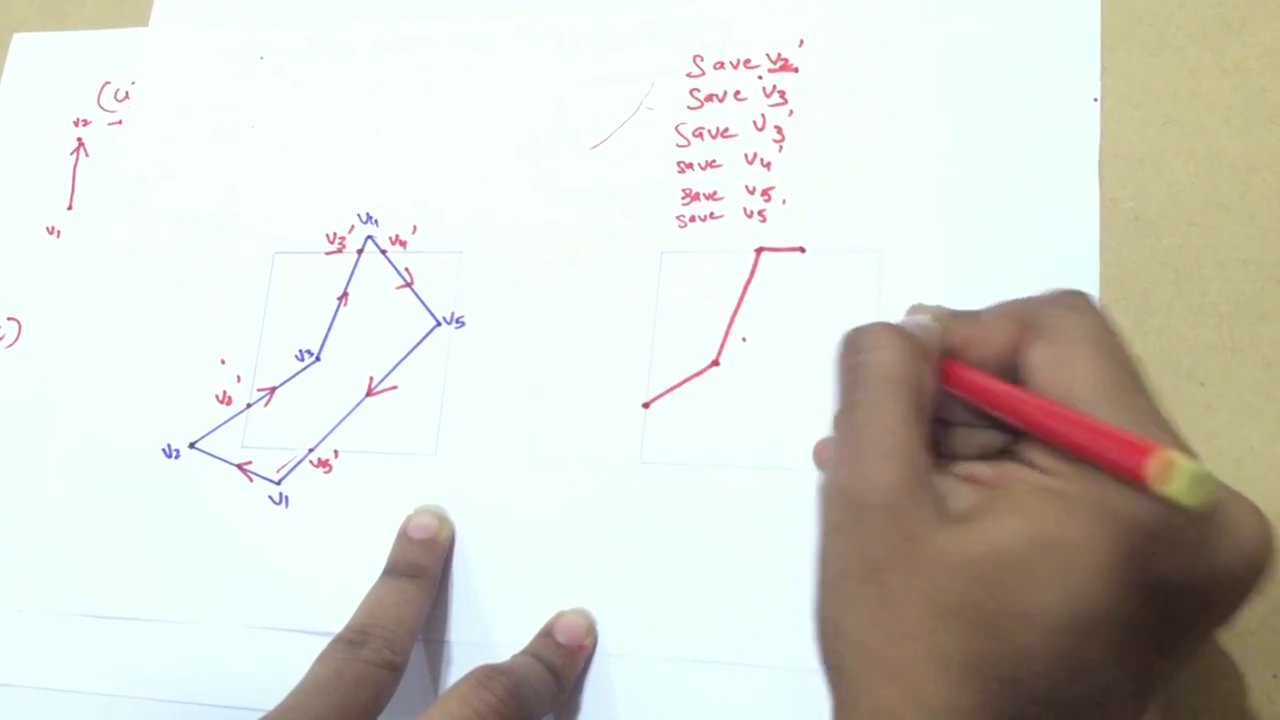 Save v2'
Save v3
Save v3'
save v4'
save v5,
save v5
v2
v1
v4
v3'
v4'
v5
v3
v2'
v2
v5'
v1